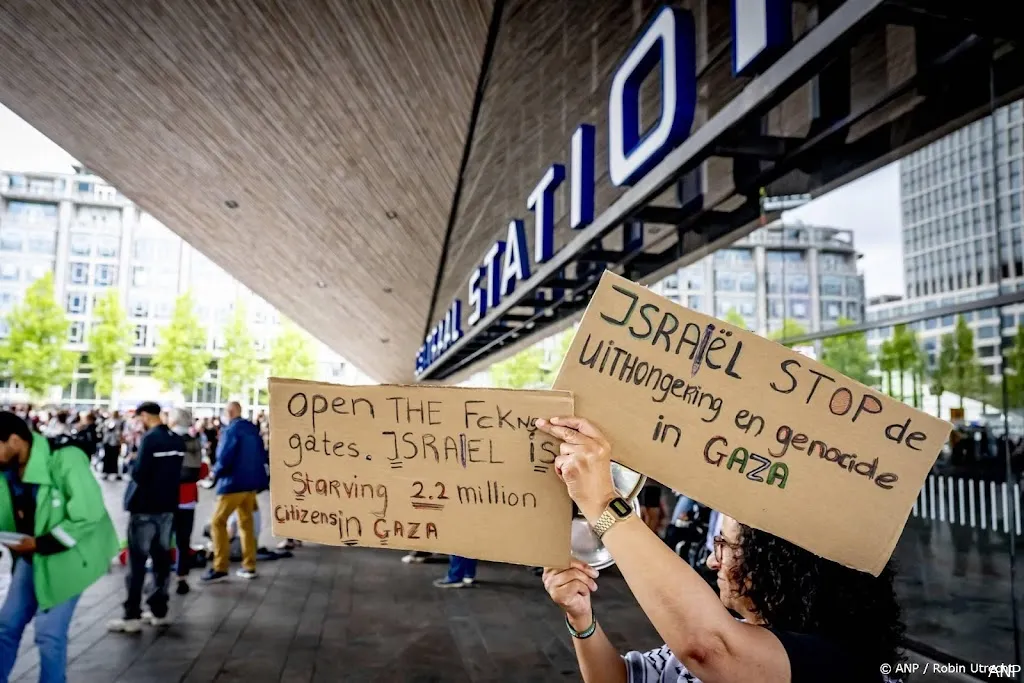 CENTRAAL STATION
Open THE FcKNG
gates. ISRAEL is
Starving 2.2 million
Citizens in GAZA
ISRAËL STOP de
UITHongering en genocide
in GAZA
© ANP / Robin Utrecht
ANP